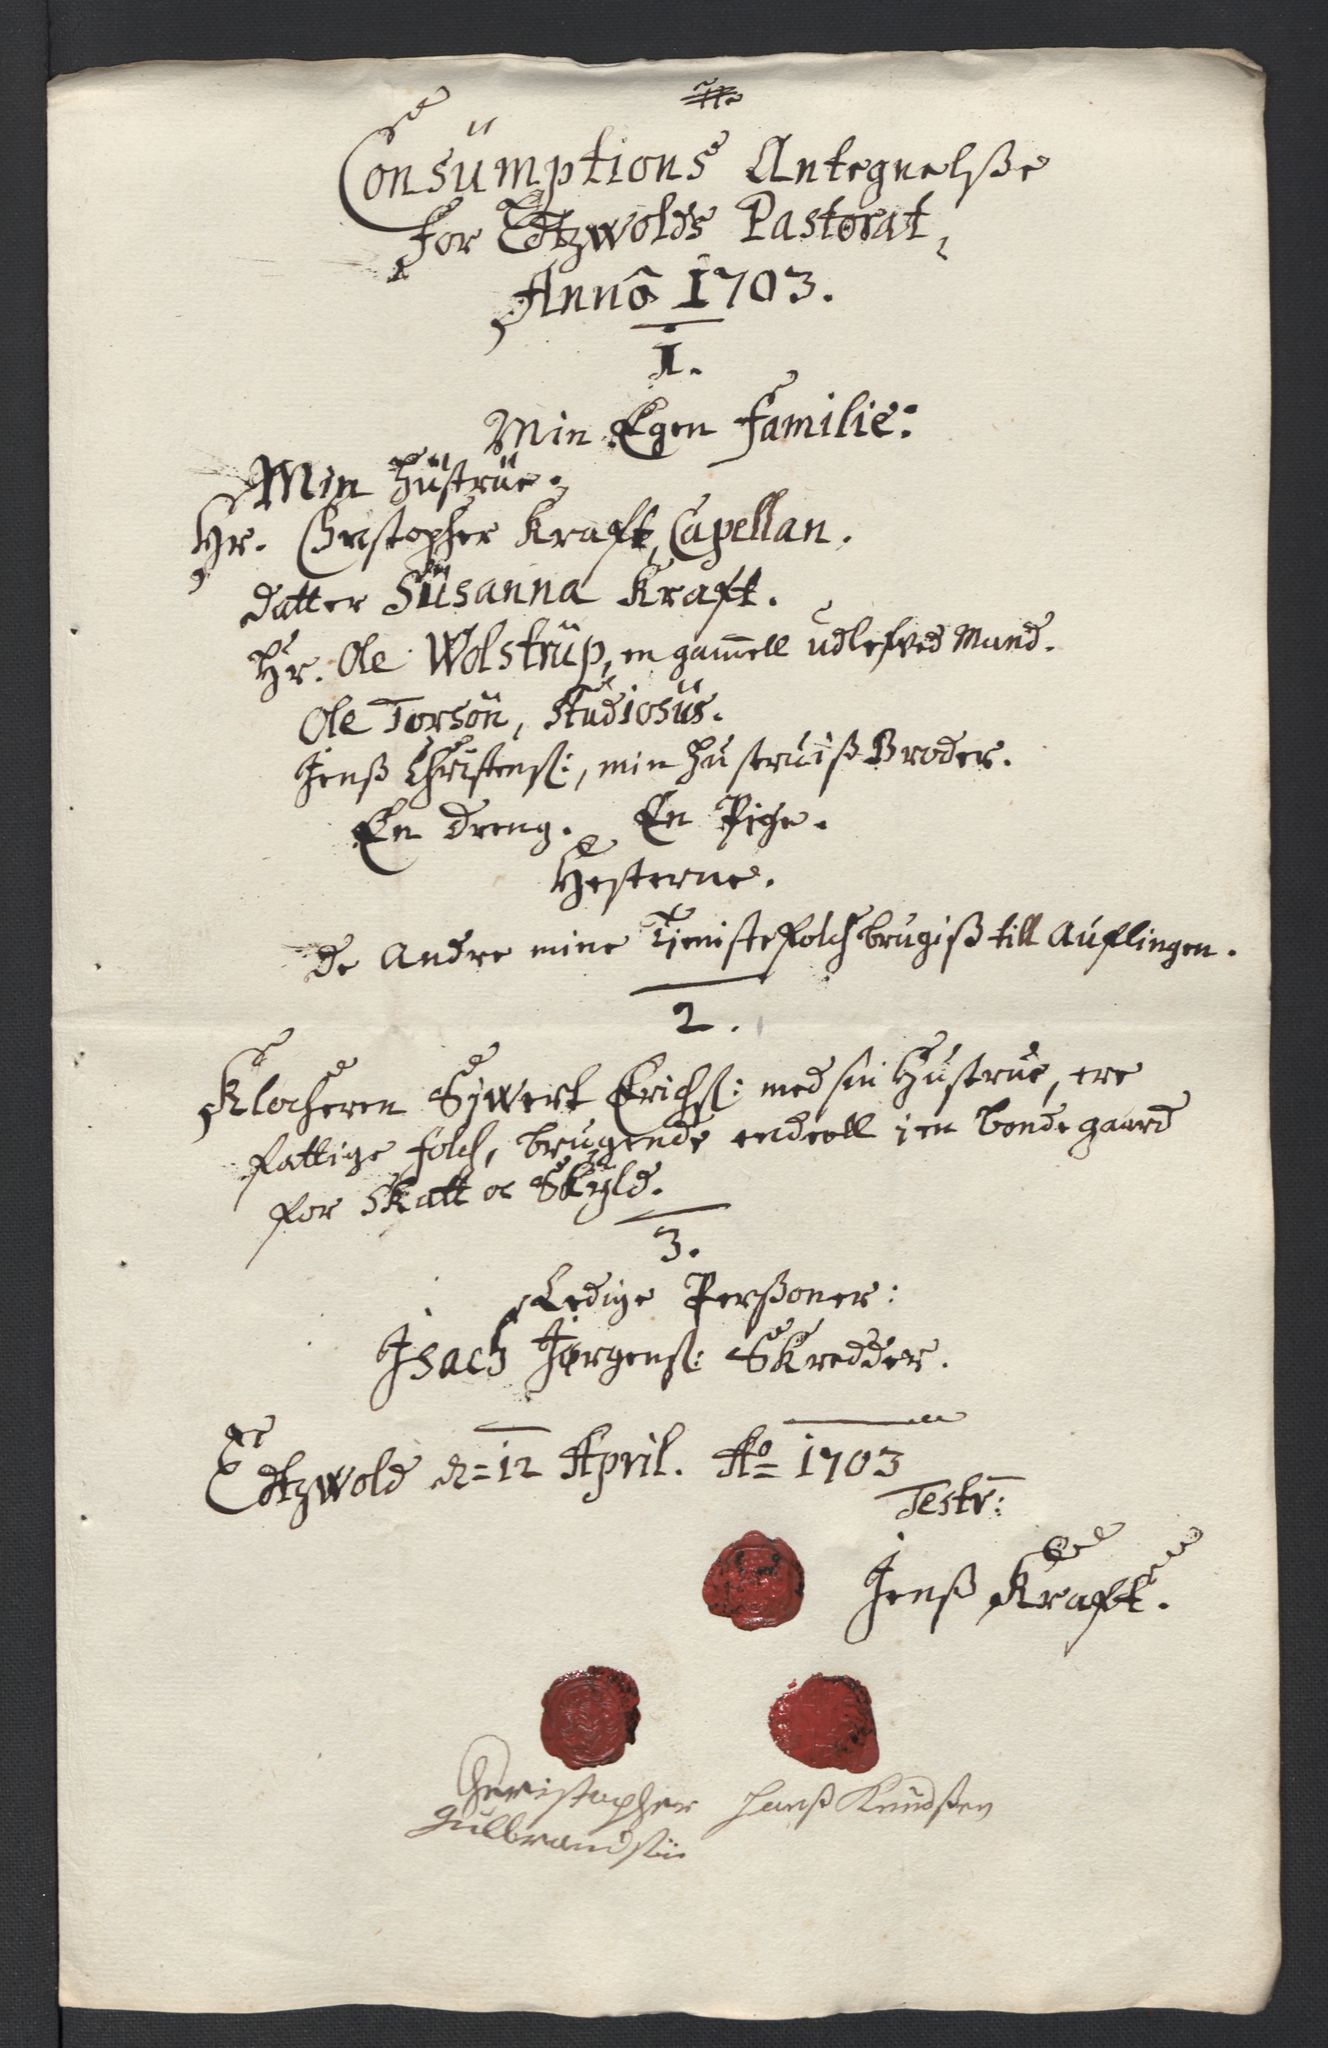 Consümptions Antegnelße
for Edtzwolds Pastorat,
Anno 1703.
1.
Min Egen familie:
Min hüstrüe.
Hr. Christopher Kraft, Capellan.
datter Süsanna Kraft.
Hr. Ole Wolstrüp, en gam̄ell udlefved Mand.
Ole Torsön, Stüdiosüs.
Jenß Christenß:, min hustruiß Broder.
En Dreng. En Pige.
Hesterne.
De Andre mine Tienistefolch brugiß till Auflingen.
2.
Klocheren Sywert Erichß: med sin Hustrue, ere
fattige folch, brugende endeell i en bondegaard
for Skatt oc Skyld.
3.
Ledige Perßoner:
Isach Jørgenß: Skredder.
Edtzwold d=12 April. Ao= 1703
Testr:
Jenß Kraft.
Christopher Hanß Knüdßen
Gulbrandsün